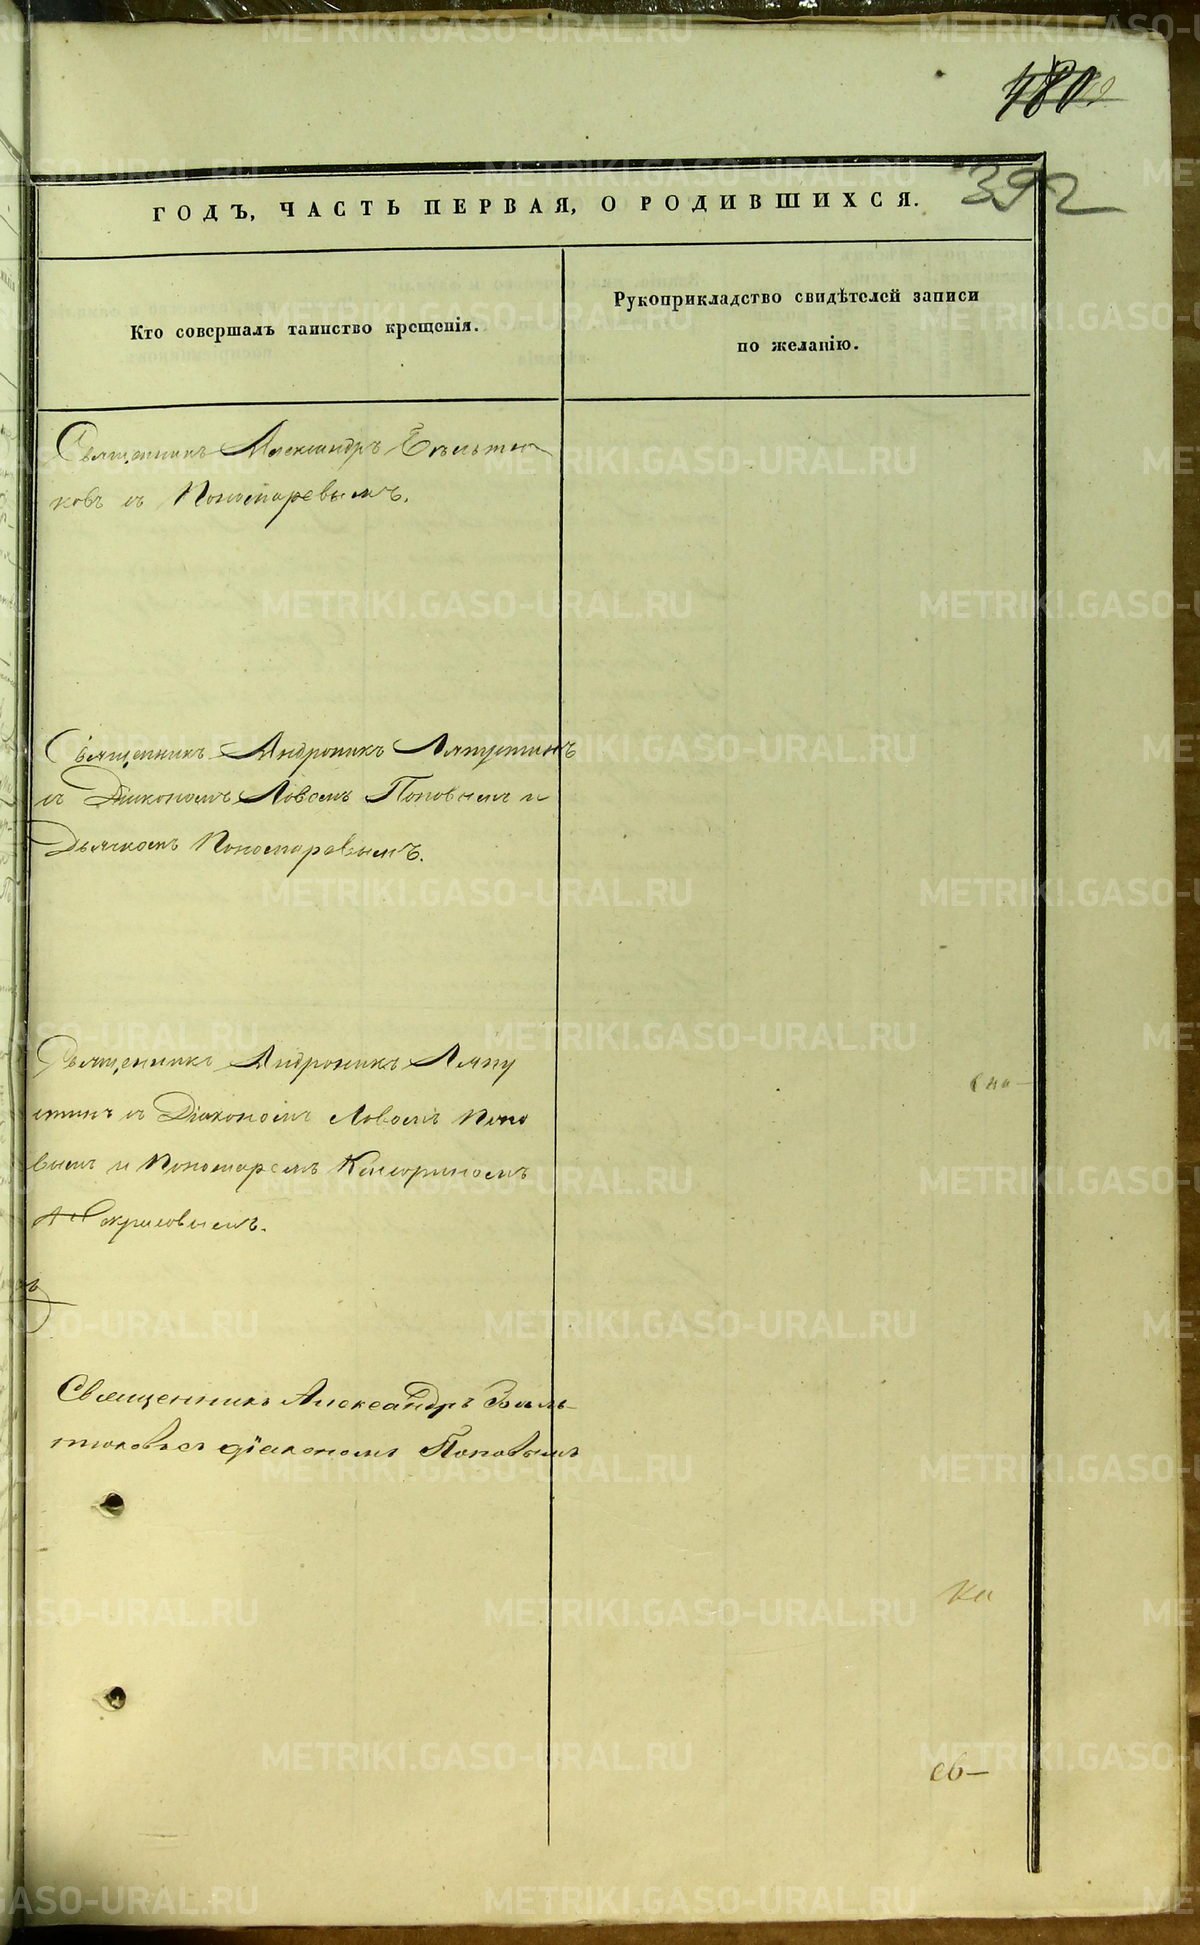 480
392
ГОДЪ, ЧАСТЬ ПЕРВАЯ, О РОДИВШИХСЯ.
Кто совершалъ таинство крещенія.
Рукоприкладство свидѣтелей записи
по желанію.
Священникъ Александръ
ковъ съ Пономаревымъ.
Священникъ Андроникъ Ляпустинъ
съ Діакономъ Іовомъ Поповымъ и
Дьячкомъ Пономаревымъ.
Священникъ Андроникъ Ляпу
стинъ съ Діакономъ Іовомъ Попо
вымъ и Пономаремъ
Священникъ Александръ
тюковъ съ діакономъ Поповымъ
METRIKI.GASO-URAL.RU